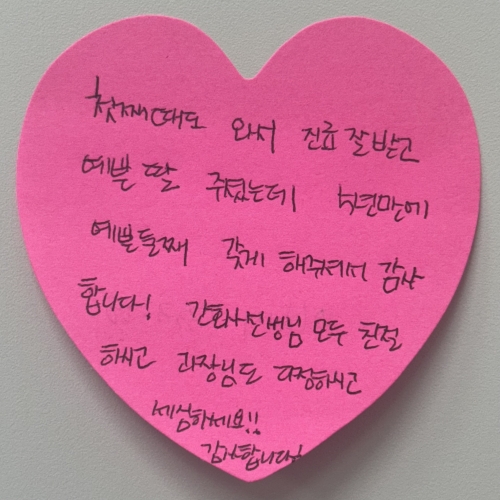 첫째때도 와서 진료 잘 받고
예쁜 딸 주셨는데 넉년만에
예쁜둘째 갖게 해주셔서 감사
합니다! 간호사선생님 모두 친절
하시고 과장님도 다정하시고
세심하세요!!
감사합니다!